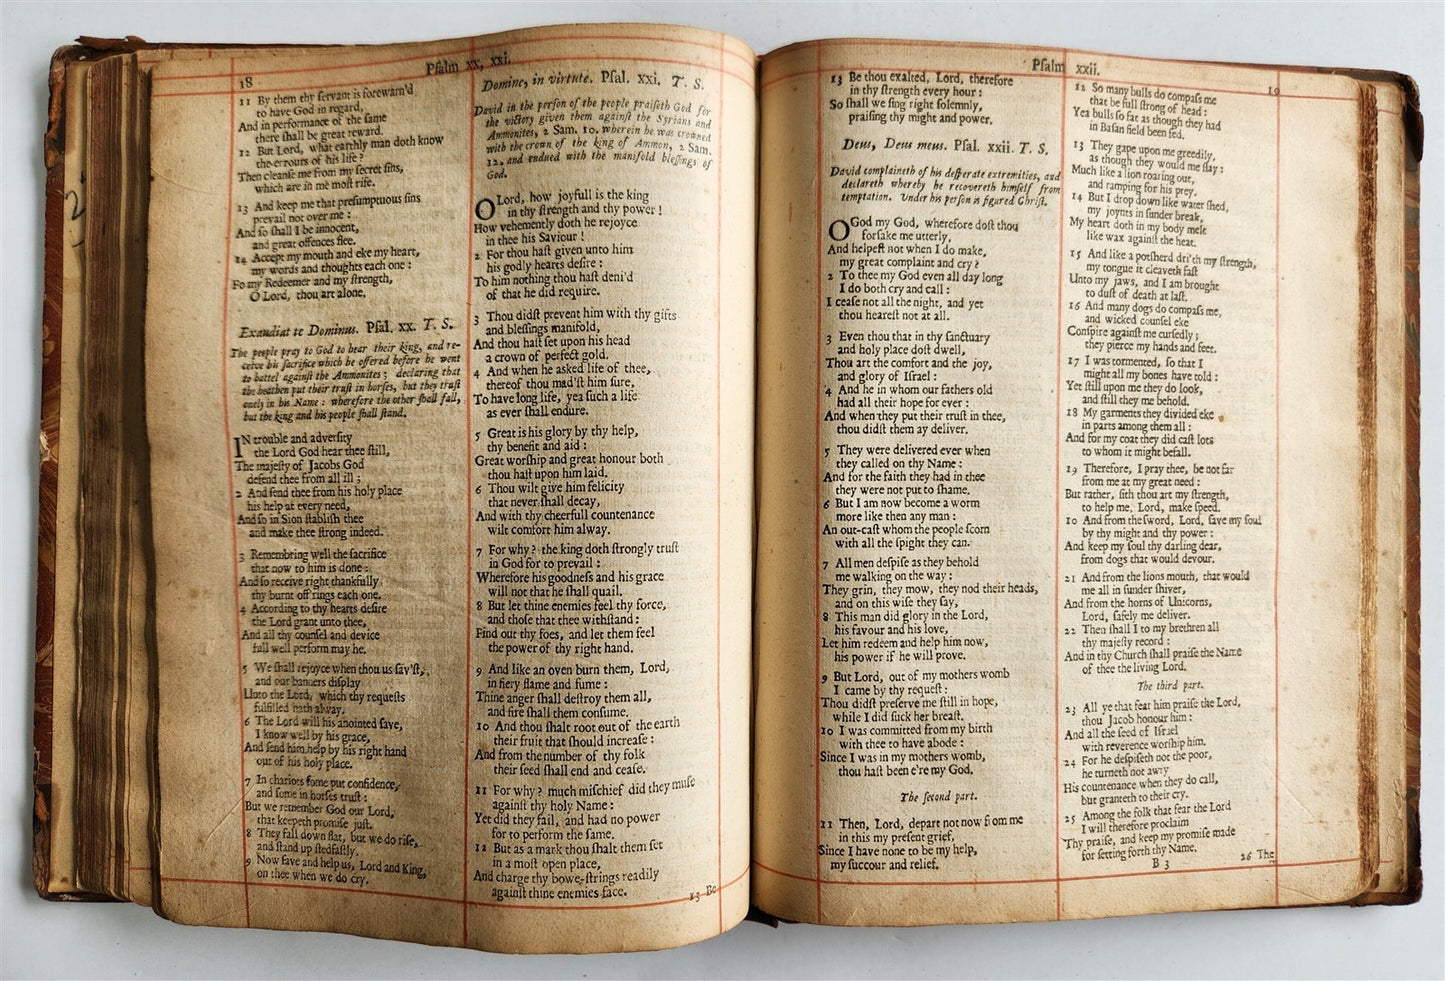 18
Pſalm xx, xxi.
11 By them thy ſervant is forewarn'd,
to have God in regard,
And in performance of the ſame
there ſhall be great reward.
12 But Lord, what earthly man doth know
the errours of his life?
Then cleanſe me from my ſecret ſins,
which are in me moſt rife.
13 And keep me that preſumptuous ſins
prevail not over me:
And ſo ſhall I be innocent,
and great offences flee.
14 Accept my mouth and eke my heart,
my words and thoughts each one:
Fo my Redeemer and my ſtrength,
O Lord, thou art alone.
Exaudiat te Dominus. Pſal. xx. T. S.
The people pray to God to hear their king, and re-
ceive his ſacrifice which he offered before he went
to battel againſt the Ammonites; declaring that
the heathen put their truſt in horſes, but they truſt
onely in his Name: wherefore the other ſhall fall,
but the king and his people ſhall ſtand.
IN trouble and adverſity
the Lord God hear thee ſtill,
The majeſty of Jacobs God
defend thee from all ill;
2 And ſend thee from his holy place
his help at every need,
And ſo in Sion ſtabliſh thee
and make thee ſtrong indeed.
3 Remembring well the ſacrifice
that now to him is done:
And ſo receive right thankfully
thy burnt off'rings each one.
4 According to thy hearts deſire
the Lord grant unto thee,
And all thy counſel and device
full well perform may he.
5 We ſhall rejoyce when thou us ſav'ſt,
and our banners diſplay
Unto the Lord, which thy requeſts
fulfilled hath alway.
6 The Lord will his anointed ſave,
I know well by his grace,
And ſend him help by his right hand
out of his holy place.
7 In chariots ſome put confidence,
and ſome in horſes truſt:
But we remember God our Lord,
that keepeth promiſe juſt.
8 They fall down flat, but we do riſe,
and ſtand up ſtedfaſtly.
9 Now ſave and help us, Lord and King,
on thee when we do cry.
Domine, in virtute. Pſal. xxi. T. S.
David in the perſon of the people praiſeth God for
the victory given them againſt the Syrians and
Ammonites, 2 Sam. 10. wherein he was crowned
with the crown of the king of Ammon, 2 Sam.
12. and endued with the manifold bleſſings of
God.
O Lord, how joyfull is the king
in thy ſtrength and thy power!
How vehemently doth he rejoyce
in thee his Saviour!
2 For thou haſt given unto him
his godly hearts deſire:
To him nothing thou haſt deni'd
of that he did require.
3 Thou didſt prevent him with thy gifts
and bleſſings manifold,
And thou haſt ſet upon his head
a crown of perfect gold.
4 And when he asked life of thee,
thereof thou mad'ſt him ſure,
To have long life, yea ſuch a life
as ever ſhall endure.
5 Great is his glory by thy help,
thy benefit and aid:
Great worſhip and great honour both
thou haſt upon him laid.
6 Thou wilt give him felicity
that never ſhall decay,
And with thy cheerfull countenance
wilt comfort him alway.
7 For why? the king doth ſtrongly truſt
in God for to prevail:
Wherefore his goodneſs and his grace
will not that he ſhall quail.
8 But let thine enemies feel thy force,
and thoſe that thee withſtand:
Find out thy foes, and let them feel
the power of thy right hand.
9 And like an oven burn them, Lord,
in fiery flame and fume:
Thine anger ſhall deſtroy them all,
and fire ſhall them conſume.
10 And thou ſhalt root out of the earth
their fruit that ſhould increaſe:
And from the number of thy folk
their ſeed ſhall end and ceaſe.
11 For why? much miſchief did they muſe
againſt thy holy Name:
Yet did they fail, and had no power
for to perform the ſame.
12 But as a mark thou ſhalt them ſet
in a moſt open place,
And charge thy bowe-ſtrings readily
againſt thine enemies face.
13 Be
Pſalm xxii.
19
13 Be thou exalted, Lord, therefore
in thy ſtrength every hour:
So ſhall we ſing right ſolemnly,
praiſing thy might and power.
Deus, Deus meus. Pſal. xxii. T. S.
David complaineth of his deſperate extremities, and
declareth whereby he recovereth himſelf from
temptation. Under his perſon is figured Chriſt.
O God my God, wherefore doſt thou
forſake me utterly,
And helpeſt not when I do make,
my great complaint and cry?
2 To thee my God even all day long
I do both cry and call:
I ceaſe not all the night, and yet
thou heareſt not at all.
3 Even thou that in thy ſanctuary
and holy place doſt dwell,
Thou art the comfort and the joy,
and glory of Iſrael:
4 And he in whom our fathers old
had all their hope for ever:
And when they put their truſt in thee,
thou didſt them ay deliver.
5 They were delivered ever when
they called on thy Name:
And for the faith they had in thee
they were not put to ſhame.
6 But I am now become a worm
more like then any man:
An out-caſt whom the people ſcorn
with all the ſpight they can.
7 All men deſpiſe as they behold
me walking on the way:
They grin, they mow, they nod their heads,
and on this wiſe they ſay,
8 This man did glory in the Lord,
his favour and his love,
Let him redeem and help him now,
his power if he will prove.
9 But Lord, out of my mothers womb
I came by thy requeſt:
Thou didſt preſerve me ſtill in hope,
while I did ſuck her breaſt.
10 I was committed from my birth
with thee to have abode:
Since I was in my mothers womb,
thou haſt been e're my God.
The ſecond part.
11 Then, Lord, depart not now from me
in this my preſent grief,
Since I have none to be my help,
my ſuccour and relief.
12 So many bulls do compaſs me
that be full ſtrong of head:
Yea bulls ſo fat as though they had
in Baſan field been fed.
13 They gape upon me greedily,
as though they would me ſlay:
Much like a lion roaring out,
and ramping for his prey.
14 But I drop down like water ſhed,
my joynts in ſunder break,
My heart doth in my body melt
like wax againſt the heat.
15 And like a potſherd dri'th my ſtrength,
my tongue it cleaveth faſt
Unto my jaws, and I am brought
to duſt of death at laſt.
16 And many dogs do compaſs me,
and wicked counſel eke
Conſpire againſt me curſedly;
they pierce my hands and feet.
17 I was tormented, ſo that I
might all my bones have told:
Yet ſtill upon me they do look,
and ſtill they me behold.
18 My garments they divided eke
in parts among them all:
And for my coat they did caſt lots
to whom it might befall.
19 Therefore, I pray thee, be not far
from me at my great need:
But rather, ſith thou art my ſtrength,
to help me, Lord, make ſpeed.
10 And from the ſword, Lord, ſave my ſoul
by thy might and thy power:
And keep my ſoul thy darling dear,
from dogs that would devour.
21 And from the lions mouth, that would
me all in ſunder ſhiver,
And from the horns of Unicorns,
Lord, ſafely me deliver.
22 Then ſhall I to my brethren all
thy majeſty record:
And in thy Church ſhall praiſe the Name
of thee the living Lord.
The third part.
23 All ye that fear him praiſe the Lord,
thou Jacob honour him:
And all the ſeed of Iſrael
with reverence worſhip him.
24 For he deſpiſeth not the poor,
he turneth not awry
His countenance when they do call,
but granteth to their cry.
25 Among the folk that fear the Lord
I will therefore proclaim
Thy praiſe, and keep my promiſe made
for ſetting forth thy Name.
B 3
26 The